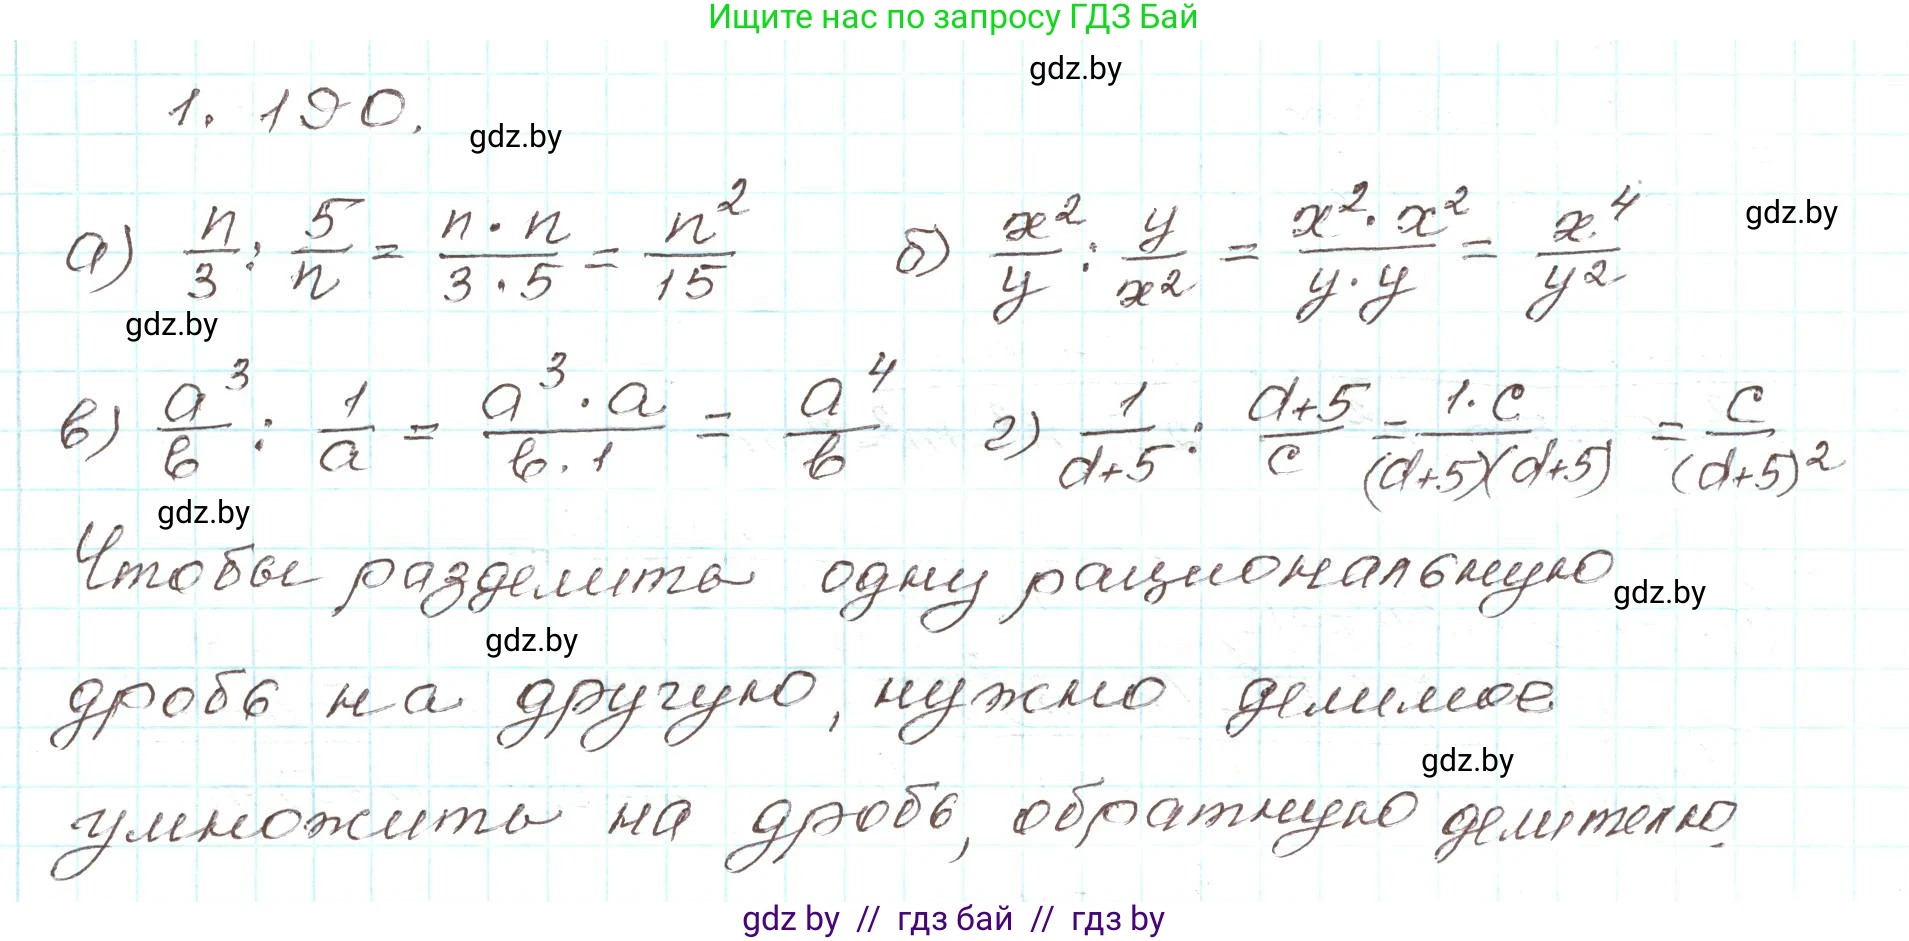 Ищите нас по запросу ГДЗ Бай
gdz.by
1.190.
gdz.by
а) n/3 : 5/n = n·n/3·5 = n²/15 б) x²/y : y/x² = x²·x²/y·y = x⁴/y²
gdz.by
gdz.by
в) a³/b : 1/a = a³·a/b·1 = a⁴/b г) 1/d+5 : d+5/c = 1·c/(d+5)(d+5) = c/(d+5)²
gdz.by
Чтобы разделить одну рациональную
gdz.by
gdz.by
дробь на другую, нужно делимое
gdz.by
умножить на дробь, обратную делителю.
gdz by // гдз бай // гдз by